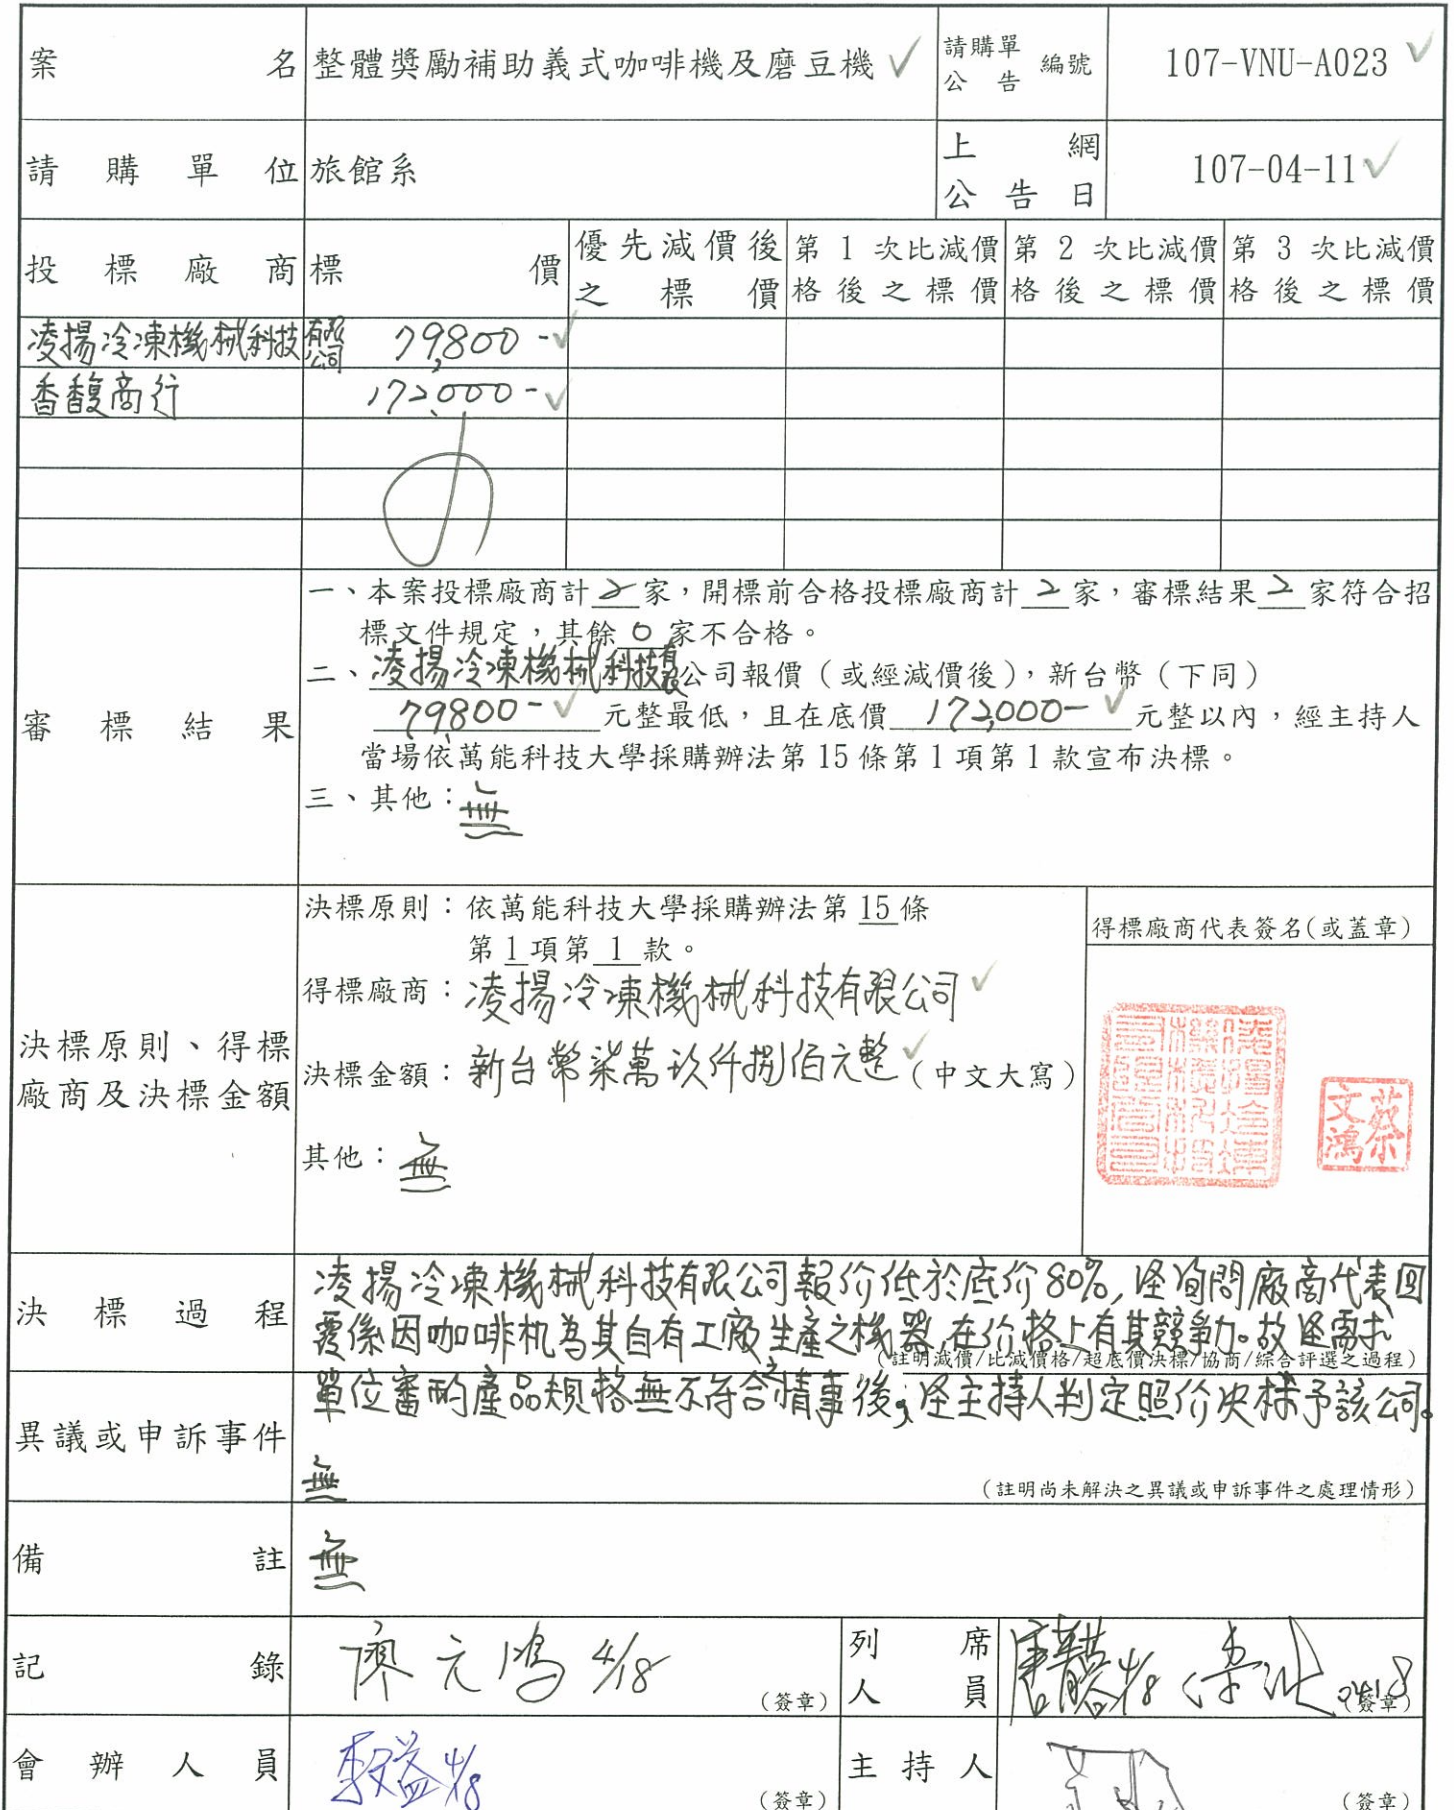 案名 整體獎勵補助義式咖啡機及磨豆機 請購單公告編號 107-VNU-A023
請購單位 旅館系 上網公告日 107-04-11
投標廠商 標價 優先減價後之標價 第1次比減價格後之標價 第2次比減價格後之標價 第3次比減價格後之標價
凌揚冷凍機械科技有限公司 79,800-
香馥商行 172,000-
審標結果
一、本案投標廠商計2家，開標前合格投標廠商計2家，審標結果2家符合招
標文件規定，其餘0家不合格。
二、凌揚冷凍機械科技有限公司報價（或經減價後），新台幣（下同）
79,800-元整最低，且在底價172,000-元整以內，經主持人
當場依萬能科技大學採購辦法第15條第1項第1款宣布決標。
三、其他：無
決標原則、得標廠商及決標金額
決標原則：依萬能科技大學採購辦法第15條
第1項第1款。
得標廠商：凌揚冷凍機械科技有限公司
決標金額：新台幣柒萬玖仟捌佰元整（中文大寫）
其他：無
得標廠商代表簽名(或蓋章)
蔡文鴻
決標過程
凌揚冷凍機械科技有限公司報价低於底价80%,經詢問廠商代表回
覆係因咖啡机為其自有工廠生產之機器,在价格上有其競爭力。故經需求
（註明減價/比減價格/超底價決標/協商/綜合評選之過程）
單位審酌產品規格無不符合之情事後,經主持人判定照价決標予該公司。
異議或申訴事件
無
（註明尚未解決之異議或申訴事件之處理情形）
備註 無
記錄 廖元鴻 4/18 （簽章） 列席人員 4/18 （簽章）
會辦人員 4/18 （簽章） 主持人 （簽章）